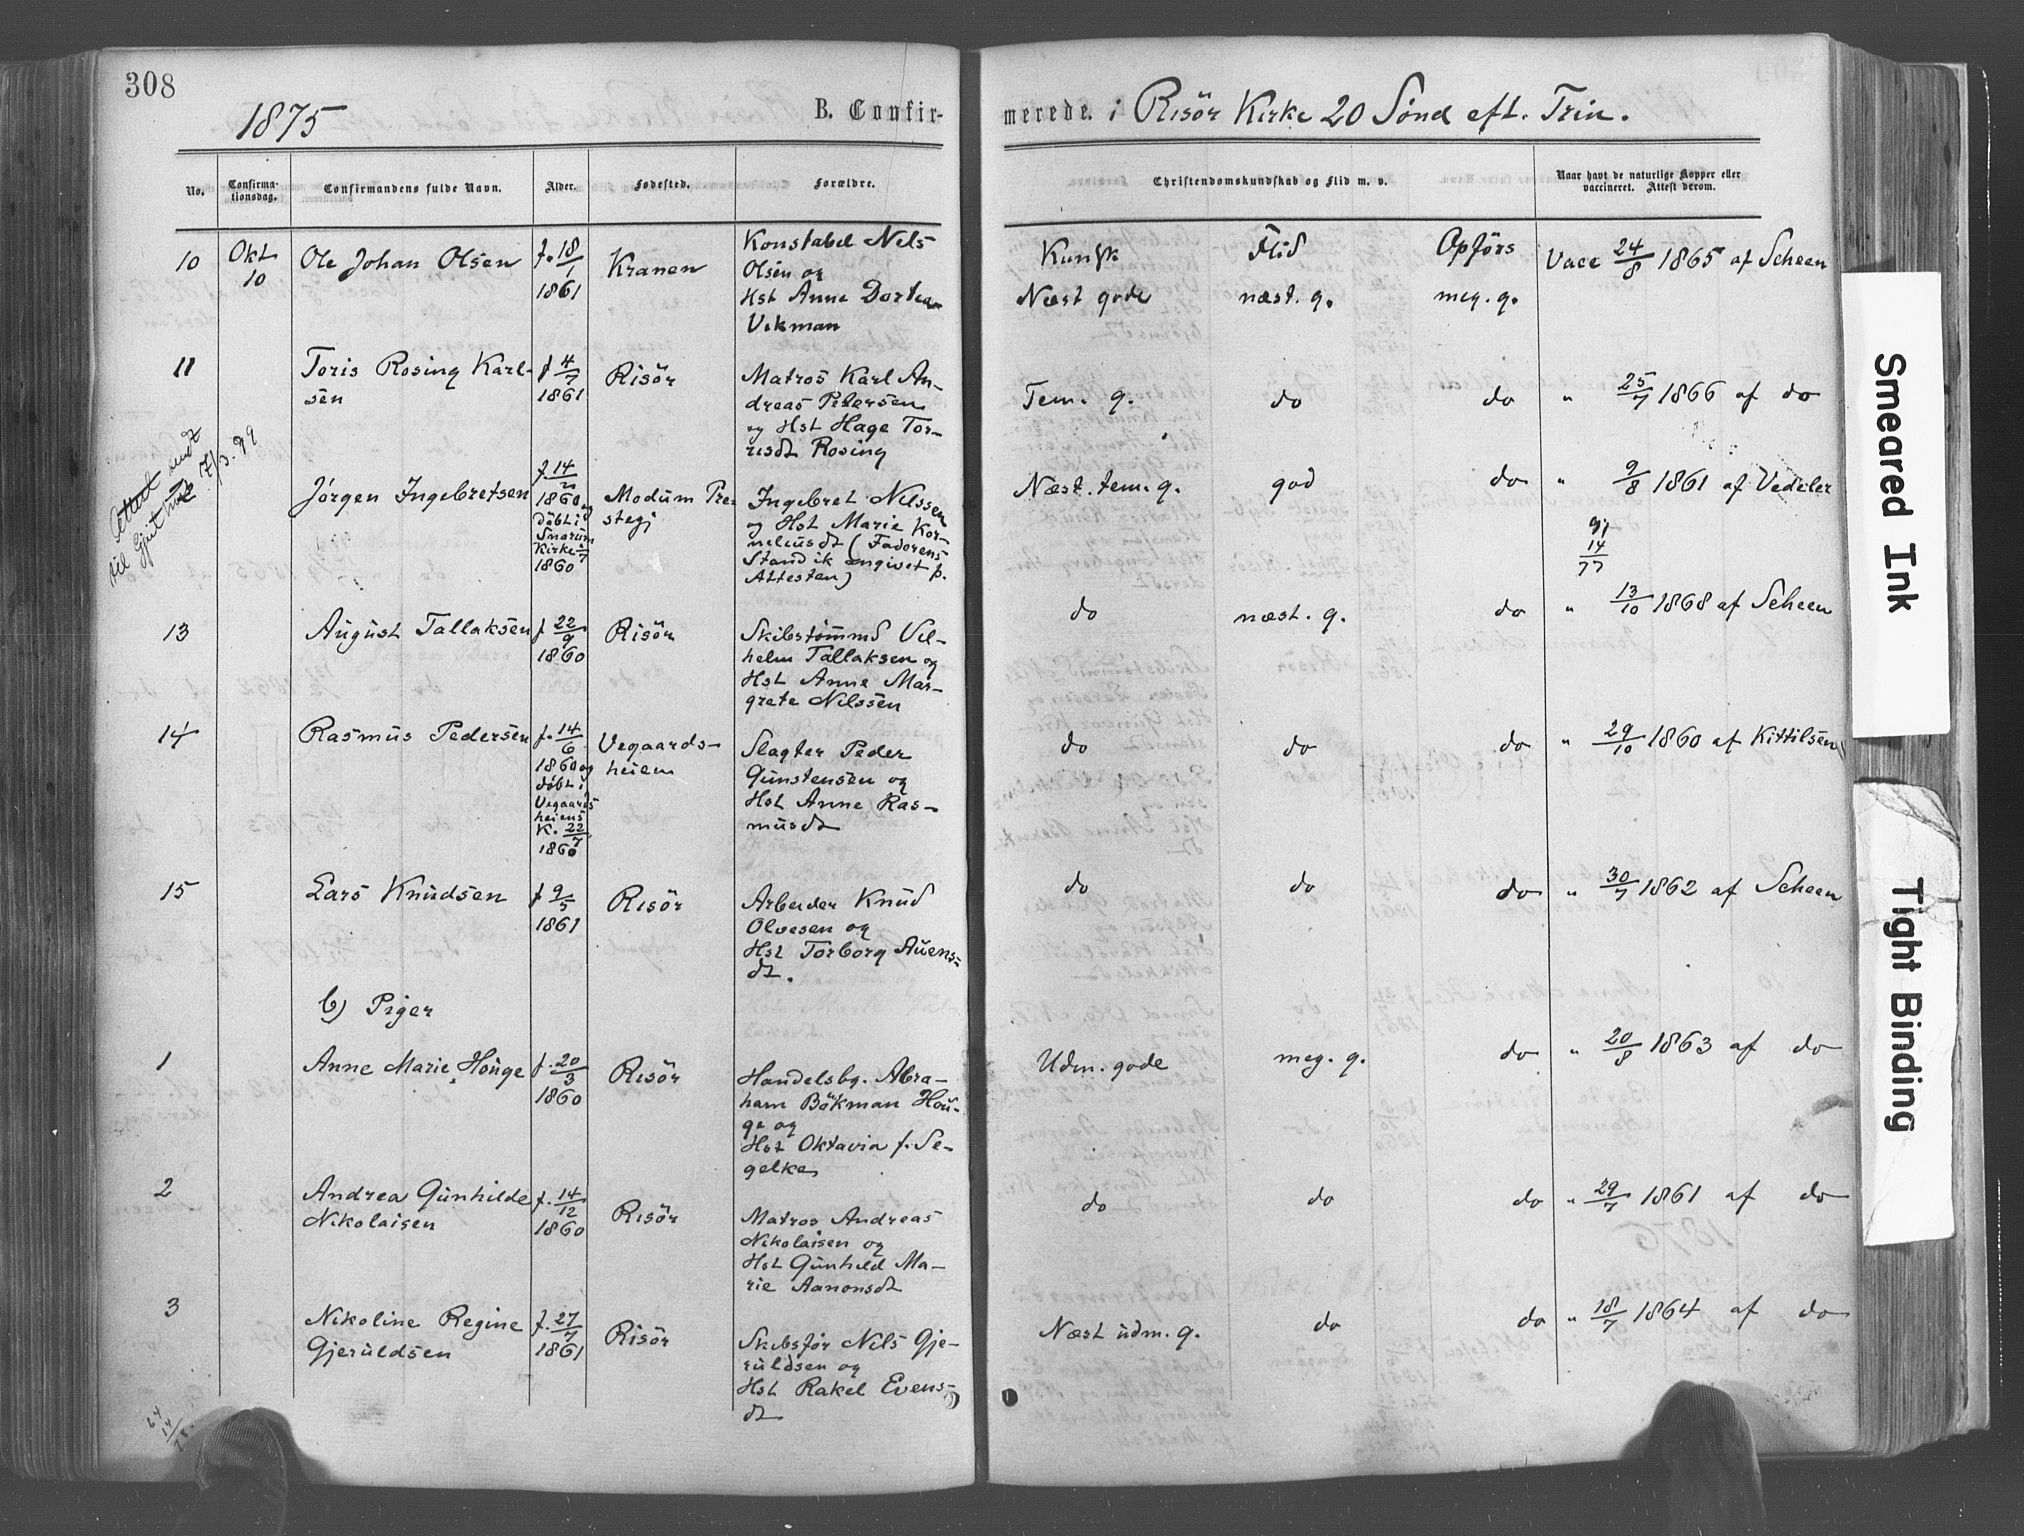 308
1875
B. Confirmerede. i Risör Kirke 20 Sønd eft. Trin.
No. Confirmationsdag. Confirmandens fulde Navn. Alder. Fødested. Forældre. Christendomskundskab og Flid m. v. Naar havt de naturlige Kopper eller vaccineret. Attest derom.
10 Okt 10 Ole Johan Olsen f. 18/1 1861 Kranen
Konstabel Nels
Olsen og
Hst Anne Dortea
Vekman
Kunsk Flid Opförs
Næst gode næst. g. meg. g.
Vacc 24/8 1865 af Scheen
11 Toris Rosing Karl-
sen
f 4/7 1861 Risör
Matros Karl An-
dreas Petersen
og Hst Hage Tor-
resdt Rosing
Tem. g. do do " 25/7 1866 af do
Attest
7/3-99
Jørgen Ingebretsen
f 14/2
1860 og
Döbt i
Snarum
Kirke
1860
Modum Pre-
stegj
Ingebret Nilssen
og Hst Marie Kor-
neliusdt (Faderens
Stand ik angivet p.
Attesten)
Næst. tem. g. god do " 9/8 1861 af Vedeler
14
77
13 August Tallaksen f 22/9 1860 Risör
Skibstømmd Vil-
helm Tallaksen og
Hst Anne Mar-
grete Nilssen
do næst. g. do " 13/10 1868 af Scheen
14 Rasmus Pedersen
f. 14/6
1860 og
döbt i
Vegaards
heiens
K. 22/7
1860
Vegaards-
heien
Slagter Peder
Gunstensen og
Hst Anne Ras-
musdt
do do do " 29/10 1860 af Kittilsen
15 Lars Knudsen f 9/5 1861 Risör
Arbeider Knud
Olvesen og
Hst Torborg Auens-
dt.
do do do " 30/7 1862 af Scheen
b) Piger
1 Anne Marie Houge f. 20/3 1860 Risör
Handelsbg. Abra-
ham Bökman Hou-
ge og
Hst Oktavia f. Se-
gelke
Udm. gode meg. g. do " 20/8 1863 af do
2 Andrea Gunhilde
Nikolaisen
f. 14/12 1860 Risör
Matros Andreas
Nikolaisen og
Hst Gunhild Ma-
rie Aanonsdt
do do do " 29/7 1861 af do
3 Nikoline Regine
Gjeruldsen
f. 27/7 1861 Risör
Skibsför Nils Gje-
ruldsen og
Hst Rakel Evens-
dt
Næst udm. g. do do " 18/7 1864 af do
64
14
78.
Smeared Ink
Tight Binding